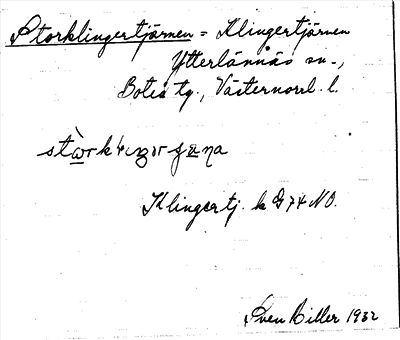 Storklingertjärnen = Klingertjärnen
Ytterlännäs sn.,
Boteå tg., Västernorrl. l.
Klingertj. k G74 NO.
Sven Hiller 1932